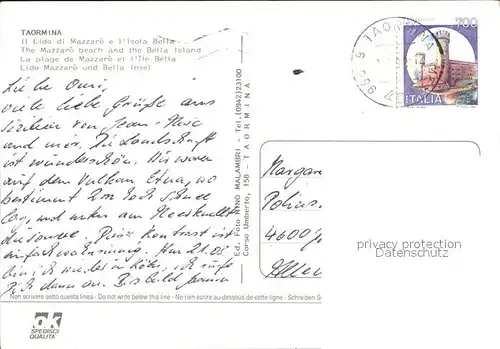 TAORMINA
Il Lido di Mazzarò e l'Isola Bella
The Mazzarò beach and the Bella Island
La plage de Mazzarò et l'Île Bella
Lido Mazzarò und Bella Insel
Liebe Omi,
viele liebe Grüße aus
Sizilien von Jean-Marc
und mir. Die Landschaft
ist wunderschön. Wir waren
auf dem Vulkan Etna, wo
bestimmt 2m hoch Schnee
lag, und unten am
Dieser Kontrast ist
einfach wahnsinnig. Am 21.05.
bin ich wieder in Köln, ich rufe
Dich dann an. Bis bald
Ed. Foto NINO MALAMBRI - Tel. (0942)23100
Corso Umberto, 158 - TAORMINA
TAORMINA
700
ITALIA
Margar
4600
privacy protection
Datenschutz
Non scrivere sotto questa linea - Do not write below this line - Ne rien écrire au-dessous de cette ligne - Schreiben S
SPEDISCI
QUALITÀ